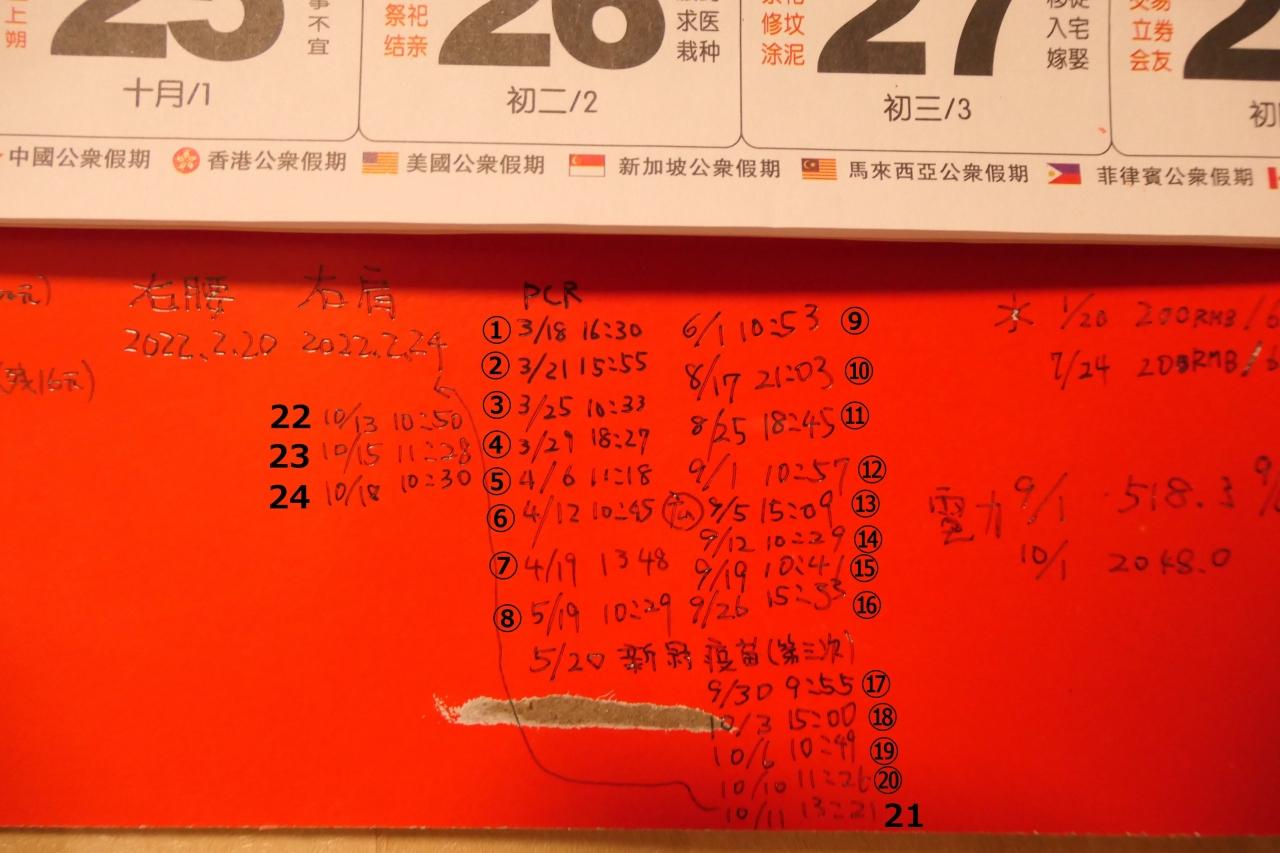 上 事
朔 不
宜
25
十月/1
祭祀
结亲
26
求医
栽种
初二/2
修坟
涂泥
27
入宅
嫁娶
初三/3
交易
立券
会友
2
初
中國公衆假期 香港公衆假期 美國公衆假期 新加坡公衆假期 馬來西亞公衆假期 菲律賓公衆假期
右腰 右肩
2022.2.20 2022.2.24
(残16元)
22 10/13 10:50
23 10/15 11:28
24 10/18 10:30
PCR
① 3/18 16:30
② 3/21 15:55
③ 3/25 10:33
④ 3/29 18:27
⑤ 4/6 11:18
⑥ 4/12 10:45
⑦ 4/19 13 48
⑧ 5/19 10:29
5/20 新冠疫苗(第三次)
6/1 10:53 ⑨
8/17 21:03 ⑩
8/25 18:45 ⑪
9/1 10:57 ⑫
9/5 15:09 ⑬
9/12 10:29 ⑭
9/19 10:41 ⑮
9/26 15:33 ⑯
9/30 9:55 ⑰
10/3 15:00 ⑱
10/6 10:49 ⑲
10/10 11:26 ⑳
10/11 13:21 21
水 1/20 200RMB/6
7/24 200RMB/6
電力 9/1 518.3
10/1 2048.0